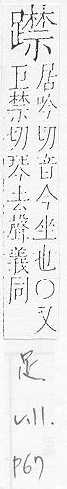 居吟切音今坐也○又
巨禁切琴去聲義同
足
V.11.
P67